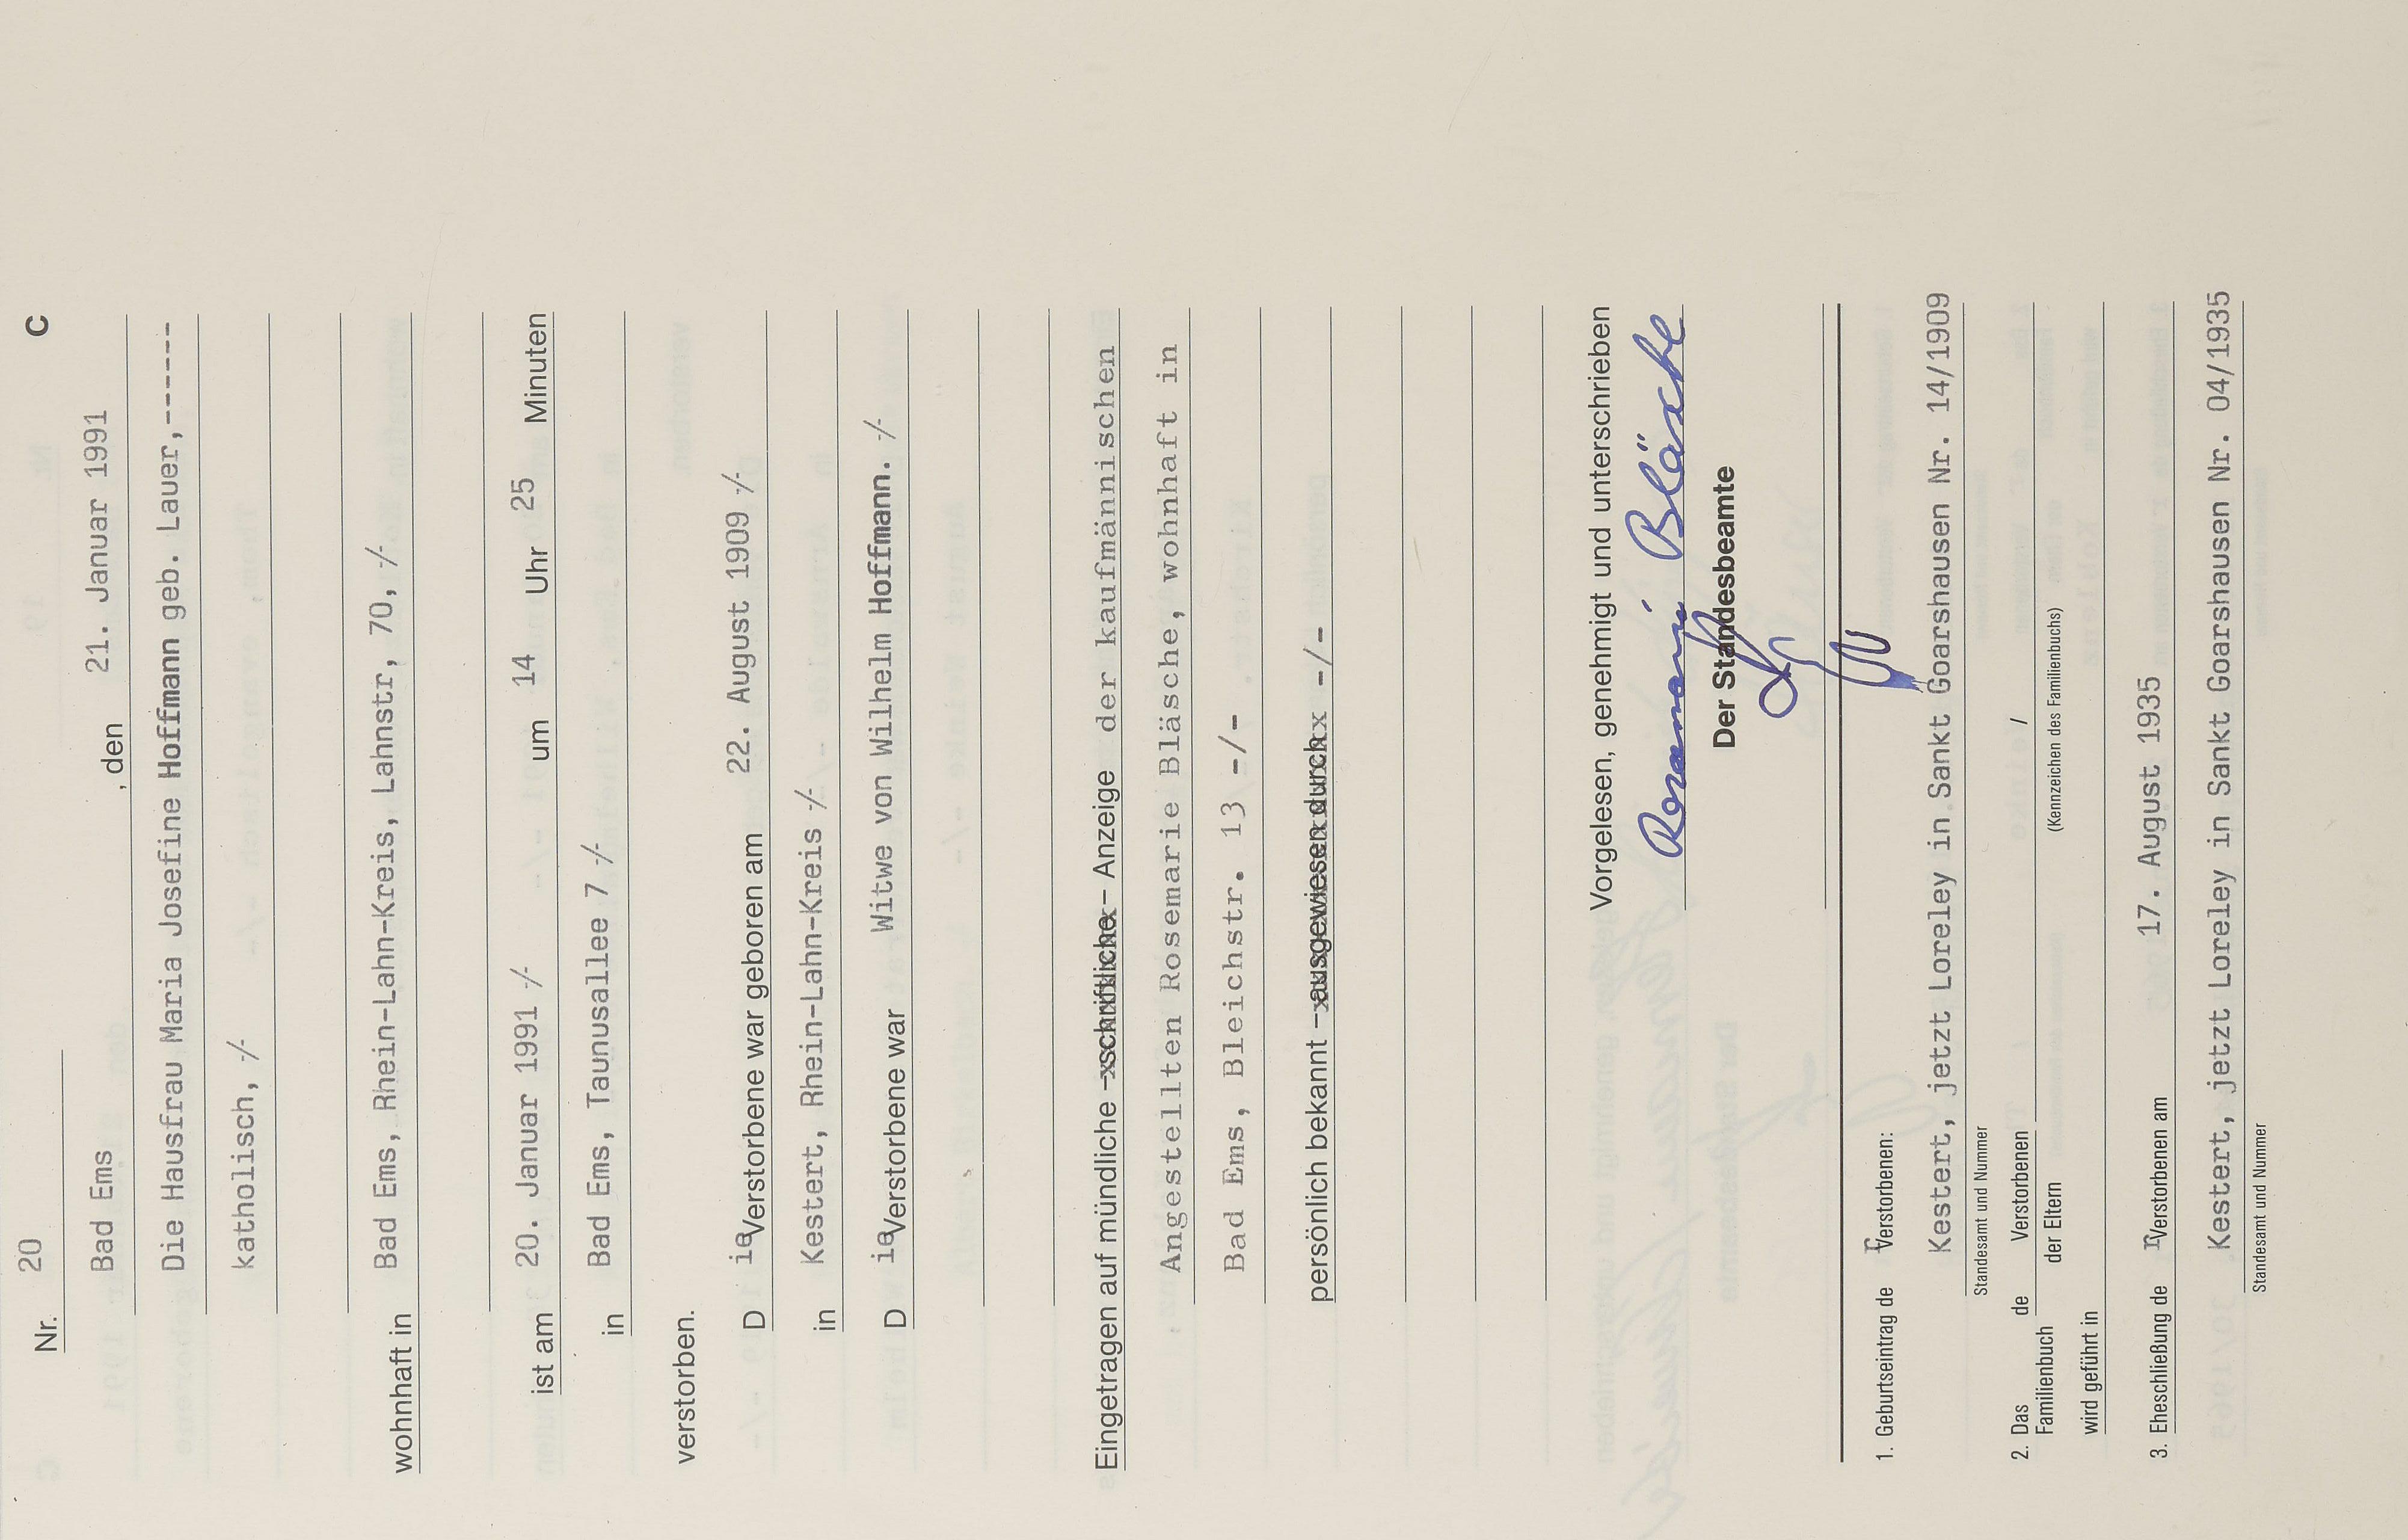 Nr. 20 C
Bad Ems , den 21. Januar 1991
Die Hausfrau Maria Josefine Hoffmann geb. Lauer,------
katholisch, -/-
wohnhaft in Bad Ems, Rhein-Lahn-Kreis, Lahnstr, 70, -/-
ist am 20. Januar 1991 -/- um 14 Uhr 25 Minuten
in Bad Ems, Taunusallee 7 -/-
verstorben.
D ie Verstorbene war geboren am 22. August 1909 -/-
in Kestert, Rhein-Lahn-Kreis -/-
D ie Verstorbene war Witwe von Wilhelm Hoffmann. -/-
Eingetragen auf mündliche – schriftliche – Anzeige der kaufmännischen
Angestellten Rosemarie Bläsche, wohnhaft in
Bad Ems, Bleichstr. 13 -/-
persönlich bekannt – ausgewiesen durch -/-
Vorgelesen, genehmigt und unterschrieben
Rosemarie Bläsche
Der Standesbeamte
1. Geburtseintrag de r Verstorbenen:
Kestert, jetzt Loreley in Sankt Goarshausen Nr. 14/1909
Standesamt und Nummer
2. Das Familienbuch de Verstorbenen / der Eltern
/
(Kennzeichen des Familienbuchs)
wird geführt in
3. Eheschließung de r Verstorbenen am 17. August 1935
Kestert, jetzt Loreley in Sankt Goarshausen Nr. 04/1935
Standesamt und Nummer